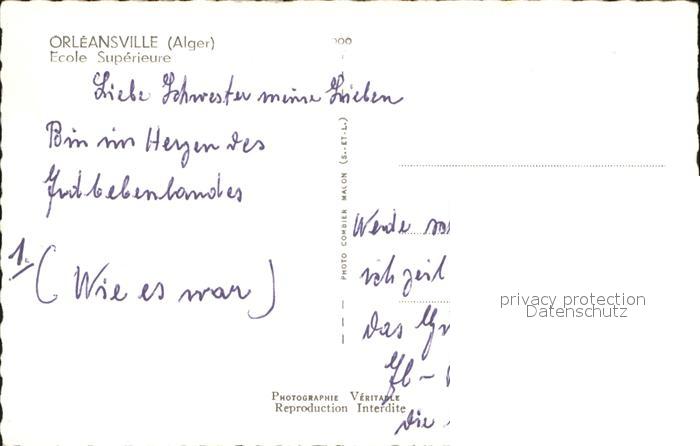 ORLÉANSVILLE (Alger)
Ecole Supérieure
Liebe Schwester meine Lieben
Bin im Herzen des
Erdbebenlandes
1.
(Wie es war)
PHOTO COMBIER MACON (S.-ET-L.)
Werde
ich zeit
das
die
privacy protection
Datenschutz
PHOTOGRAPHIE VÉRITABLE
Reproduction Interdite